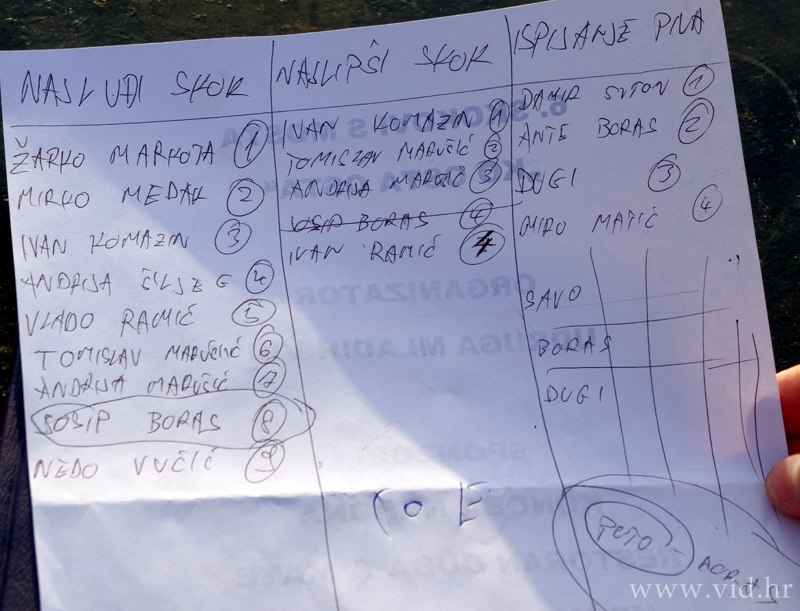 NAJLUĐI SKOK
ŽARKO MARKOTA 1
MIRKO MEDAK 2
IVAN KOMAZIN 3
ANDRIJA 4
VLADO RAMIĆ 5
TOMISLAV MARUŠIĆ 6
ANDRIJA MARUŠIĆ 7
JOSIP BORAS 8
NEDO VUČIĆ 9
NAJLIPŠI SKOK
IVAN KOMAZIN 1
TOMISLAV MARUŠIĆ 2
ANDRIJA MARUŠIĆ 3
JOSIP BORAS 4
IVAN RAMIĆ 4
ISPIJANJE PIVA
DAMIR SUTON 1
ANTE BORAS 2
DUGI 3
MIRO MATIĆ 4
SAVO
BORAS
DUGI
6. SKOKOVI S MOSTA
ORGANIZATOR
UDRUGA MLADIH
SPONZORI
RESTORAN
www.vid.hr